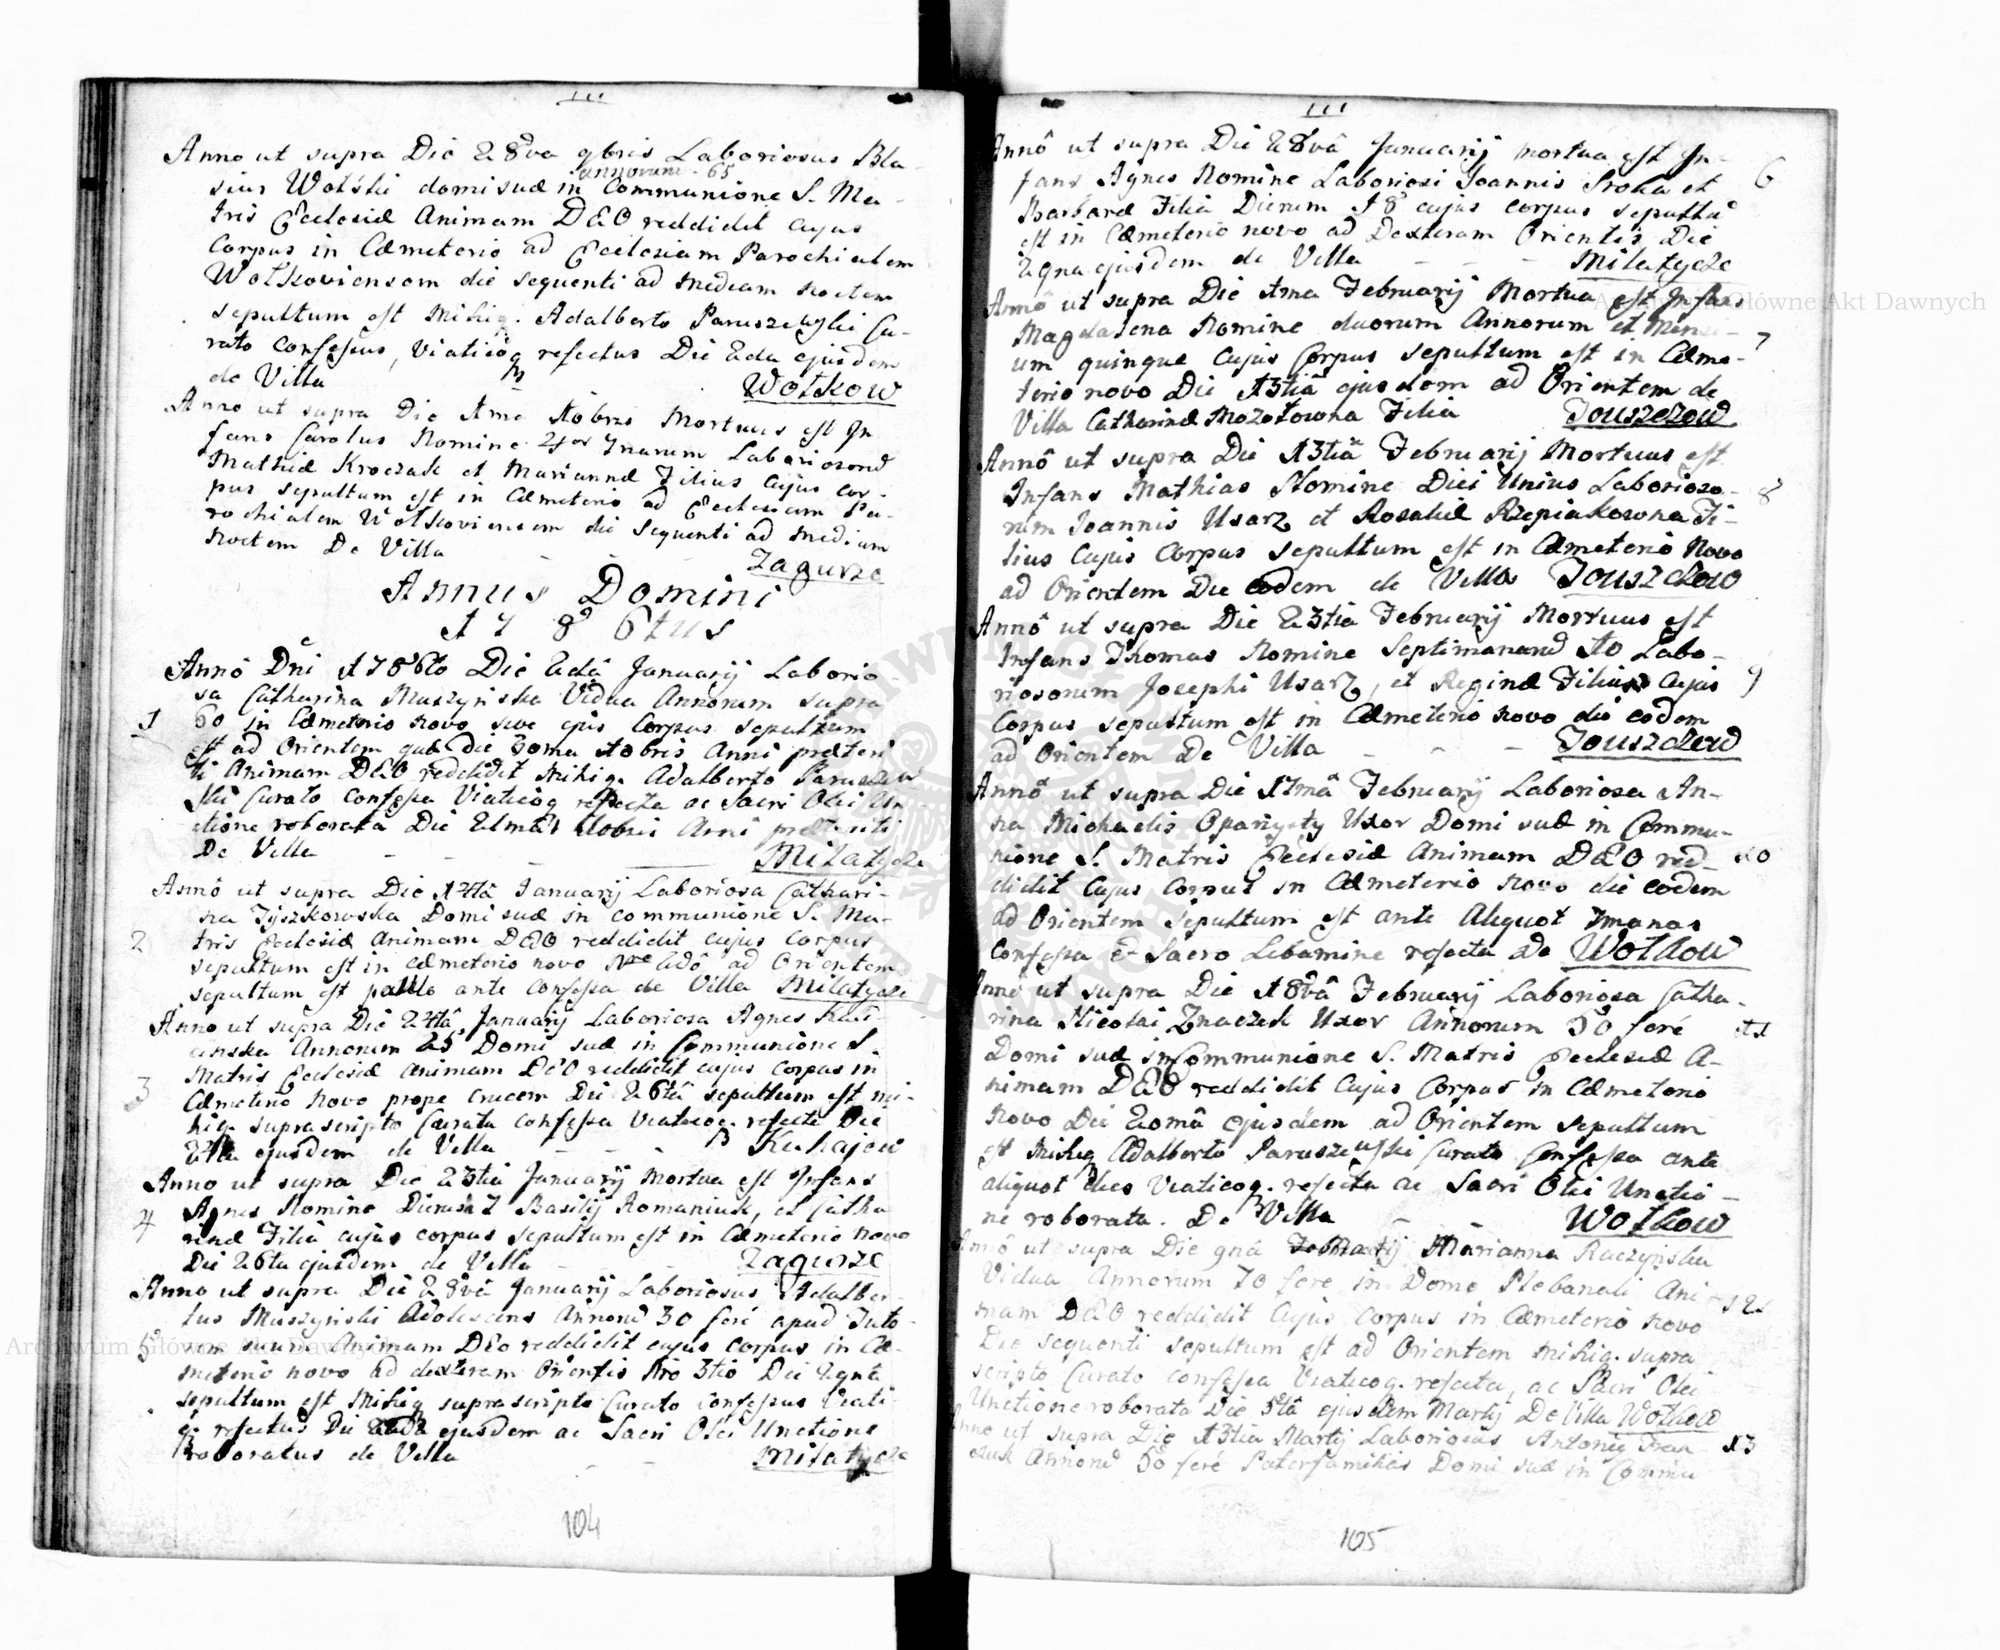 Anno ut supra Die 28va 9bris Laboriosus Bla-
annorum 65
sius Wolski domi suæ in Communione S. Ma-
tris Ecclesiæ Animam DEO reddidit cujus
Corpus in Cæmeterio ad Ecclesiam Parochialem
Wolkoviensem die sequenti ad mediam noctem
sepultum est Mihiq. Adalberto Paruszewski Cu-
rato Confessus, Viaticoq refectus Die 2da ejusdem
de Villa Wolkow
Anno ut supra Die 1ma Xobris Mortuus est In
fans Carolus Nomine 4or Laboriosorũ
Mathiæ Kroczak et Mariannæ Filius Cujus Cor-
pus sepultum est in Cæmeterio ad Ecclesiam Pa-
rochialem Wolkoviensem die sequenti ad mediam
noctem De Villa Zagurze
Annus Domini
1786tus
Annô Dñi 1786to Die 2dâ Januarij Laborio-
sa Catharina Muszyńska Vidua Annorum supra
1 60 in Cæmeterio novo sive ejus Corpus sepultum
est ad Orientem quæ Die 30ma Xobris Anni præteri
ti Animam DEO reddidit Mihiq. Adalberto Paruszew
ski Curato Confessa Viaticoq refecta ac Sacri Olei Un
ctione roborata Die 21ma Xobris Anni præteriti
De Villa Milatycze
Annô ut supra Die 14tâ Januarij Laboriosa Cathari-
na Tyszkowska Domi suæ in communione S. Ma-
2 tris Ecclesiæ Animam DEO reddidit cujus corpus
sepultum est in cæmeterio novo ad Orientem
sepultum est paulo ante Confessa de Villa Milatycze
Anno ut supra Die 24tâ Januarij Laboriosa Agnes
Annorum 25 Domi suæ in Communione S.
Matris Ecclesiæ Animam DEO reddidit cujus corpus in
3 Cæmeterio novo prope crucem Die 26tâ sepultum est mi-
hiq. suprascripto Curato confessa Viaticoq. refecta Die
24ta ejusdem de Villa Kuhajow
Anno ut supra Die 23tia Januarij Mortua est Infans
4 Agnes Nomine Dierum 2 Basilij Romaniuk, et Catha
rinæ Filia cujus corpus sepultum est in Cæmeterio novo
Die 26ta ejusdem de Villa Zagurze
Anno ut supra Die 28vâ Januarij Laboriosus Adalber-
tus Muszyński Adolescens Annorũ 30 feré apud Tuto-
5 rem suum Animam DEO reddidit cujus corpus in Cæ-
meterio novo ad dexteram Orientis Die 29nâ
sepultum est Mihiq suprascripto Curato confessus Viati-
q. refectus Die ejusdem ac Sacri Olei Unctione
roboratus de Villa Milatycze
104
Annô ut supra Die 28vâ Januarij mortua est In-
fans Agnes Nomine Laboriosi Joannis Sroka et 6
Barbaræ Filia Dierum 18 cujus corpus sepultũ
est in Cæmeterio novo ad Dexteram Orientis Die
29na ejusdem de Villa Milatycze
Annô ut supra Die 1ma Februarij Mortua est Infans
Magdalena Nomine duorum Annorum et Mensi-
um quinque Cujus Corpus sepultum est in Cæme- 7
terio novo Die 13tiâ ejusdem ad Orientem de
Villa Catharinæ Mozołowna Filia Touszczow
Annô ut supra Die 13tiâ Februarij Mortuus est
Infans Mathias Nomine Diei Unius Laborioso- 8
rum Joannis Usarz et Rosaliæ Rzepiakowna Fi-
lius Cujus Corpus sepultum est in Cæmeterio Novo
ad Orientem Die eodem de Villa Touszczow
Annô ut supra Die 23tia Februarij Mortuus est
Infans Thomas Nomine Septimanarũ 10 Labo-
riosorum Josephi Usarz, et Reginæ Filius Cujus 9
Corpus sepultum est in Cæmeterio novo die eodem
ad Orientem De Villa Touszczow
Annô ut supra Die 17mâ Februarij Laboriosa An-
na Michaelis Uxor Domi suæ in Commu-
nione S. Matris Ecclesiæ Animam DEO red- 10
didit Cujus Corpus in Cæmeterio novo die eodem
ad Orientem sepultum est ante Aliquot 7manas
Confessa & Sacro Libamine refecta De Wolkow
Annô ut supra Die 18vâ Februarij Laboriosa Catha-
rina Nicolai Znaczek Uxor Annorum 50 feré 11
Domi suæ in Communione S. Matris Ecclesiæ A-
nimam DEO reddidit Cujus Corpus in Cæmeterio
novo Die 20mâ ejusdem ad Orientem sepultum
est Mihiq Adalberto Paruszewski Curato Confessa ante
aliquot dies Viaticoq. refecta ac Sacri Olei Unctio-
ne roborata. De Villa Wolkow
Annô ut supra Die 9nâ Martij Marianna Raczyńska
Vidua Annorum 70 feré in Domo Plebanali Ani- 12
mam DEO reddidit Cujus corpus in Cæmeterio novo
Die sequenti sepultum est ad Orientem Mihiq. supra
scripto Curato confessa Viaticoq. refecta, ac Sacri Olei
Unctione roborata Die 5tâ ejusdem Martij De Villa Wolkow
Anno ut supra Die 13tia Martij Laboriosus Antonius Fran- 13
czuk Annorũ 50 feré Paterfamilias Domi suæ in Commu
105
Archiwum Główne Akt Dawnych
Archiwum Główne Akt Dawnych